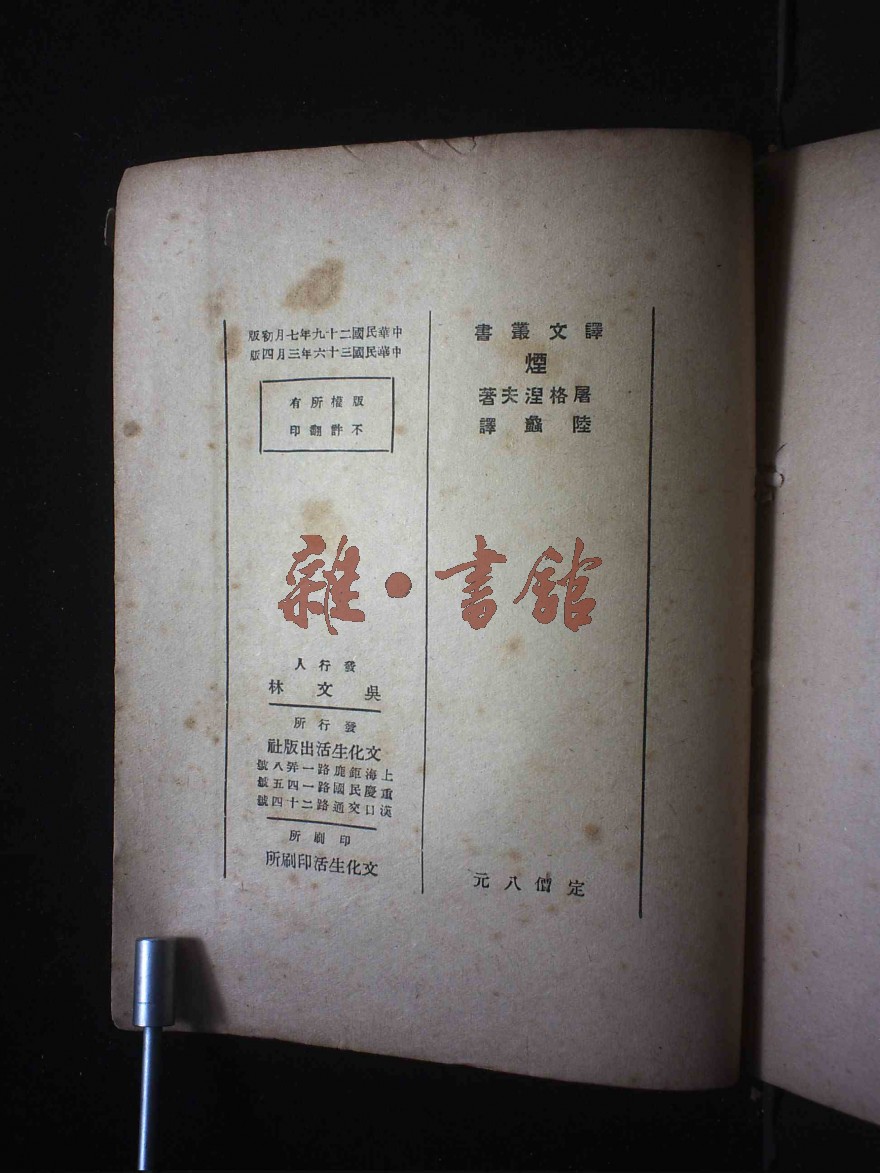 譯文叢書
煙
屠格涅夫著
陸蠡譯
定價八元
中華民國二十九年七月初版
中華民國三十六年三月四版
版權所有
不許翻印
雜·書館
發行人
吳文林
發行所
文化生活出版社
上海鉅鹿路一弄八號
重慶民國路一四五號
漢口交通路二十四號
印刷所
文化生活印刷所